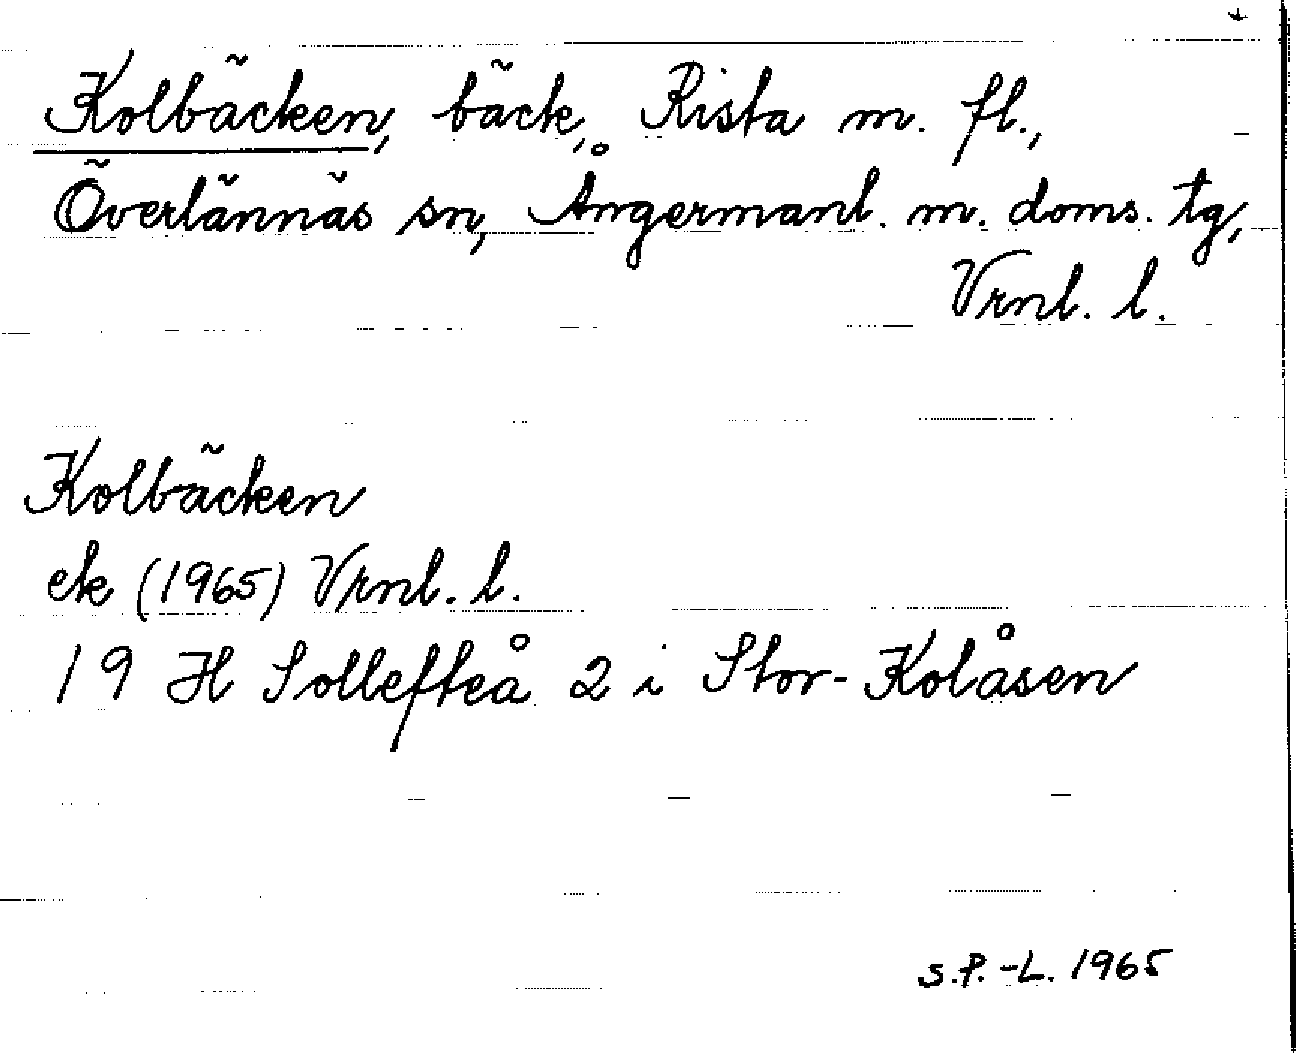 Kolbäcken, bäck, Rista m. fl.,
Överlännäs sn, Ångermanl. m. doms. tg,
Vrnl. l.
Kolbäcken
ek (1965) Vrnl. l.
19 H Sollefteå 2 i Stor-Kolåsen
S.P.-L. 1965